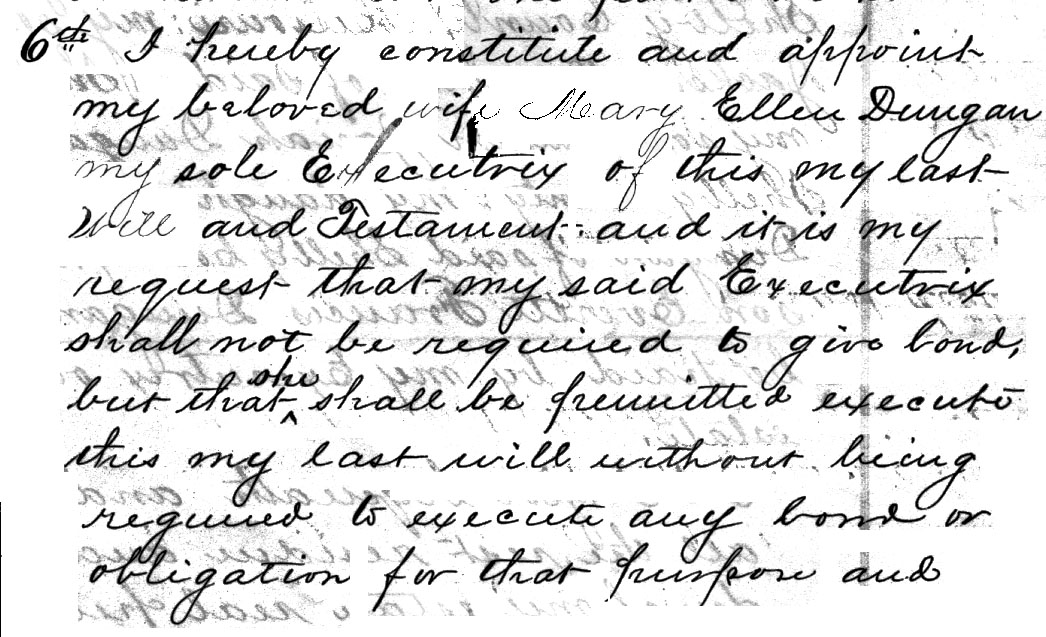 6th I hereby constitute and appoint
my beloved wife Mary Ellen Dungan
my sole Executrix of this my last
Will and Testament: and it is my
request that my said Executrix
shall not be required to give bond,
but that ^she shall be permitted execute
this my last will without being
required to execute any bond or
obligation for that purpose and